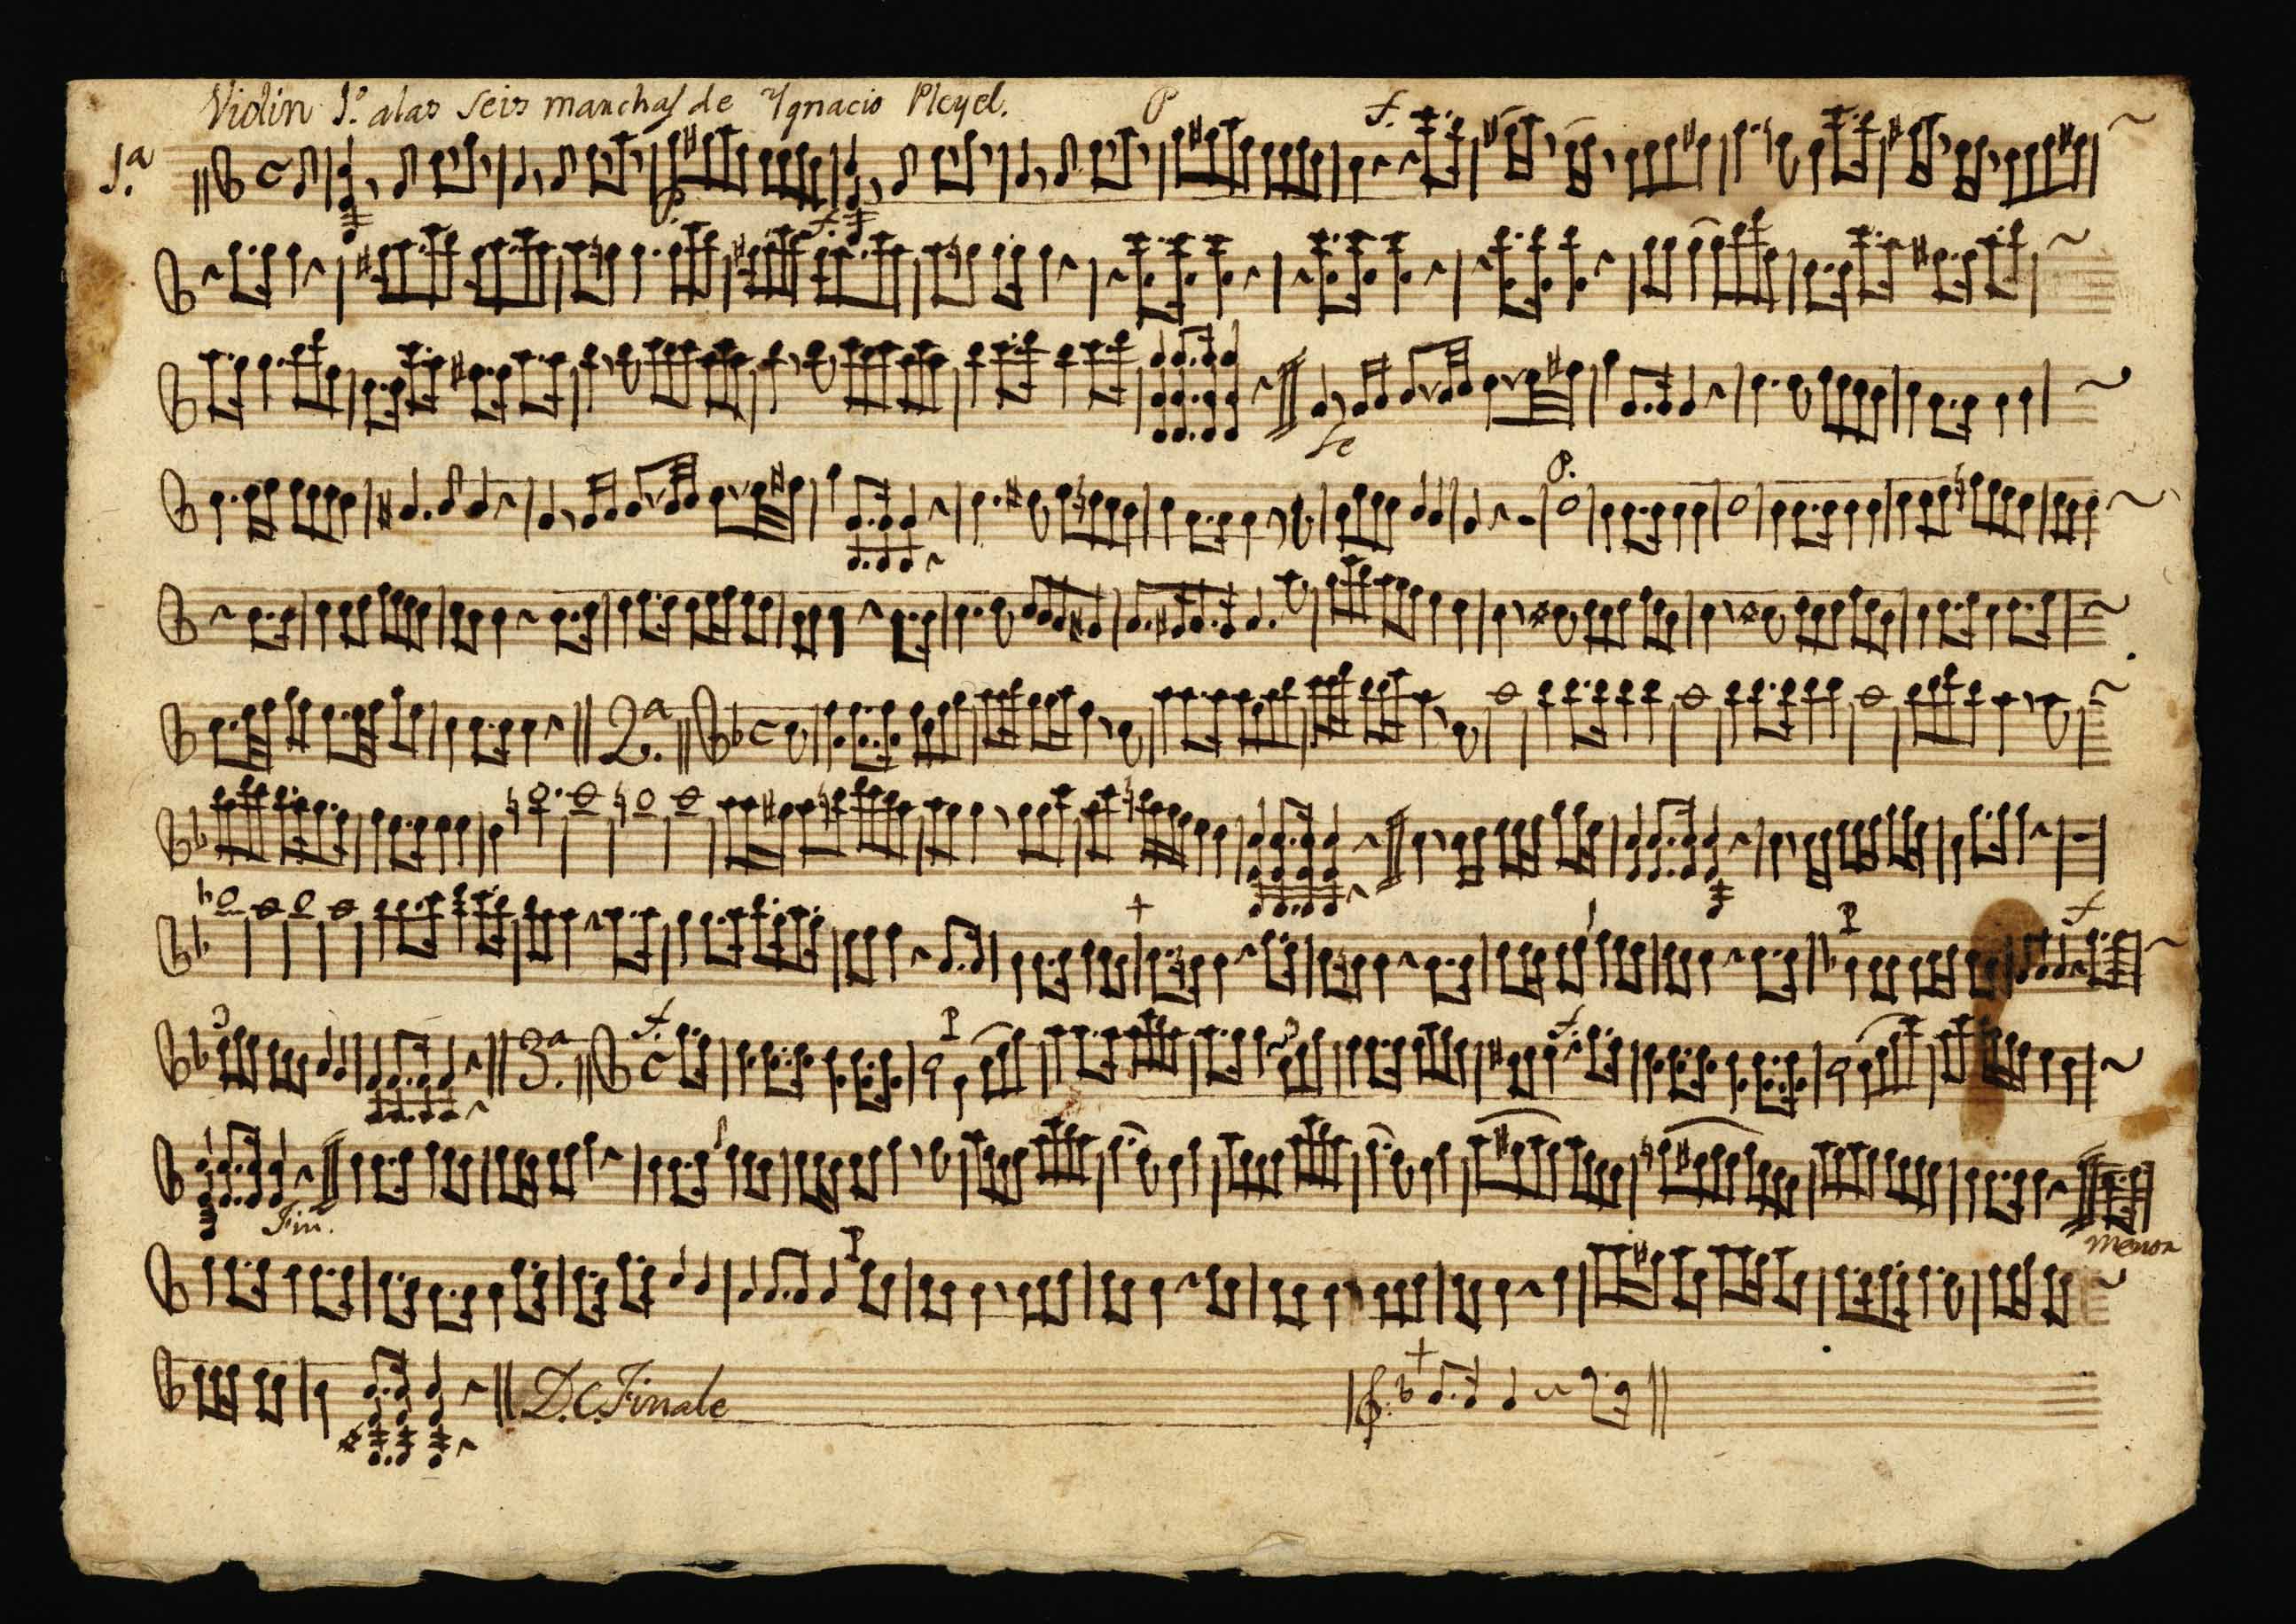 Violin 1.º alas Seis marchas de Ygnacio Pleyel.
P
f.
1.ª
P.
f.
P.
2.ª
P
f
f.
P
3.ª
f.
Fin.
Menor
P
D.C. Finale